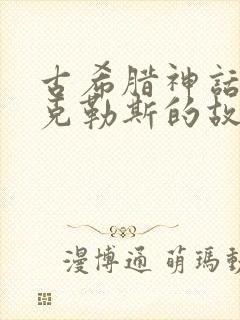 古希腊神話
克勒斯的故
漫博通 萌瑪動